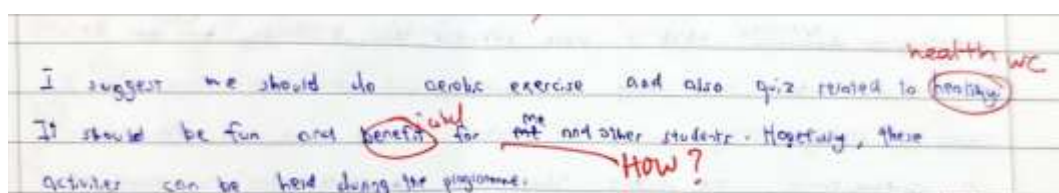 health WC
I suggest we should do aerobic exercise and also quiz related to healthy.
It should be fun and benefit icial for me and other students. Hopefully, these
HOW?
activities can be held during the programme.